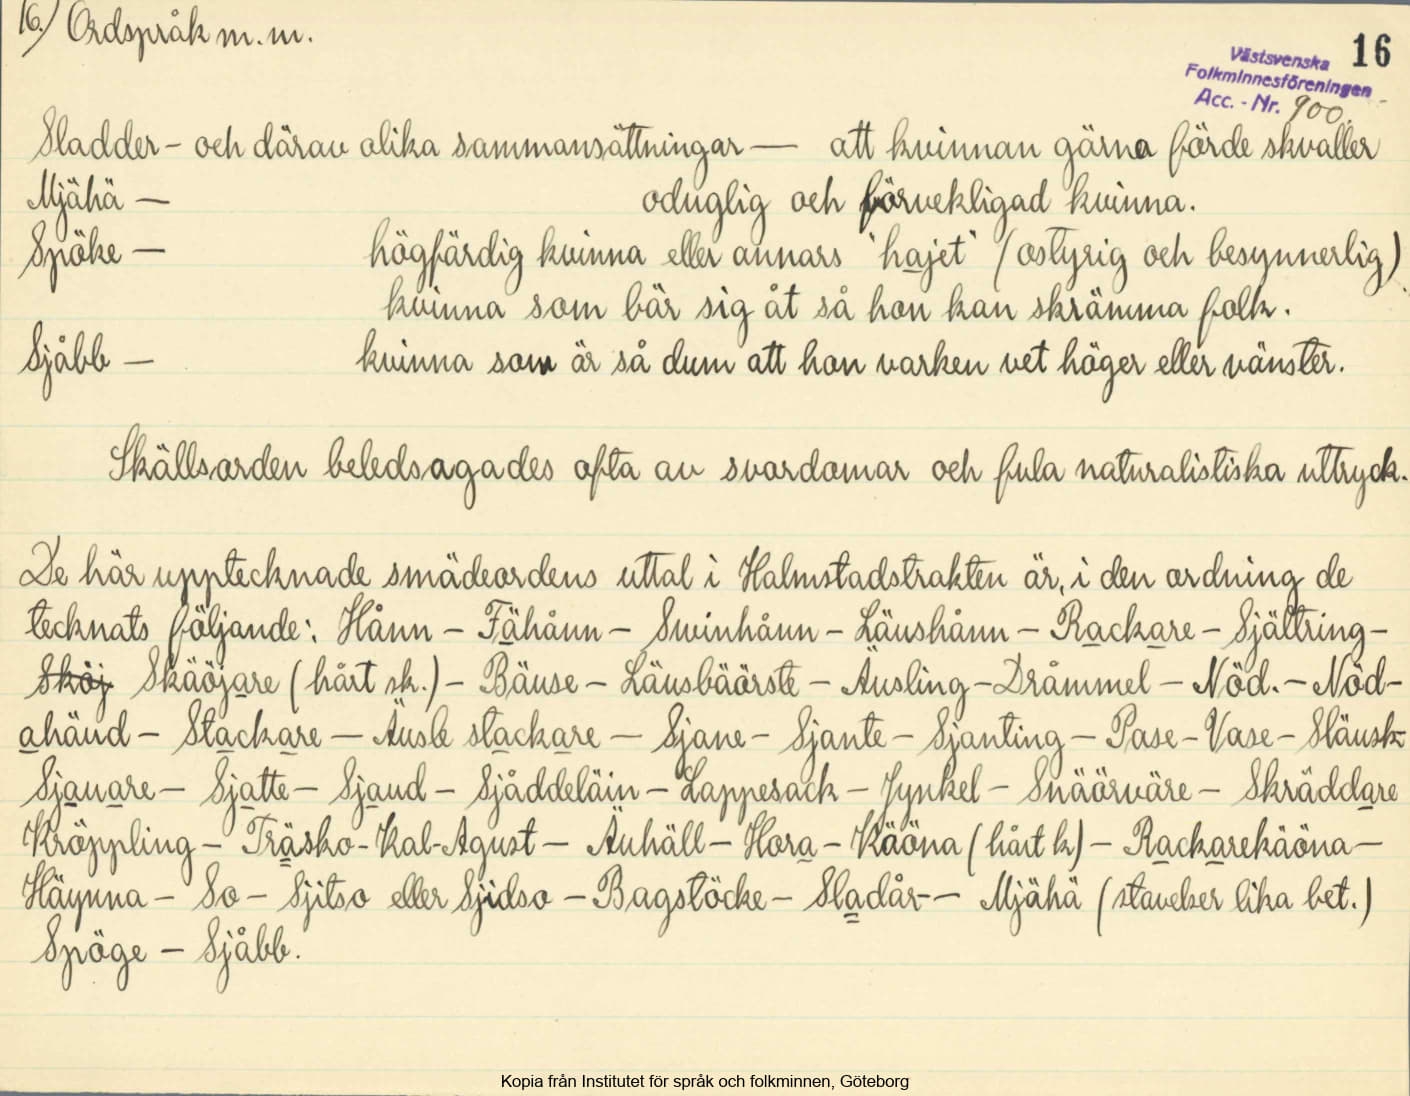 16.) Ordspråk m.m.
16
Västsvenska
Folkminnesföreningen
Acc. - Nr. 900.
Sladder - och därav olika sammansättningar — att kvinnan gärna förde skvaller
Mjähä — oduglig och förvekligad kvinna.
Spöke — högfärdig kvinna eller annars "hajet" (ostyrig och besynnerlig)
kvinna som bär sig åt så hon kan skrämma folk.
Sjåbb — kvinna som är så dum att hon varken vet höger eller vänster.
Skällsorden beledsagades ofta av svordomar och fula naturalistiska uttryck.
De här upptecknade smädeordens uttal i Halmstadstrakten är, i den ordning de
tecknats följande: Hånn - Fähånn - Swinhånn - Läushånn - Rackare - Själtring -
Sköj Skäöjare (hårt sk.) - Bäuse - Läusbäörste - Äusling - Dråmmel - Nöd. - Nöd-
ahäud - Stackare — Äusle stackare — Sjane - Sjante - Sjanting - Pase - Vase - Släusk-
Sjauare - Sjatte - Sjaud - Sjåddeläin - Lappesack - Jynkel - Snäörväre - Skräddare
Kröppling - Träsko-Kal-Agust — Äuhäll - Hora - Käöna (hårt k) - Rackarekäöna -
Häynna - So - Sjitso eller Sjidso - Bagstöcke - Sladår- - Mjähä (stavelser lika bet.)
Spöge - Sjåbb.
Kopia från Institutet för språk och folkminnen, Göteborg